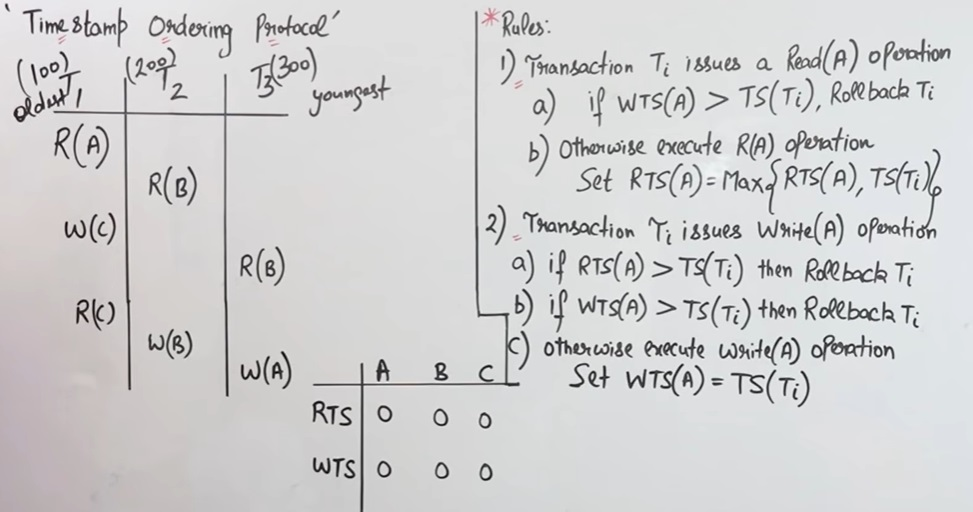 'Timestamp Ordering Protocol'
(100) (200) T3(300)
oldest T1 T2 youngest
R(A)
R(B)
W(C)
R(B)
R(C)
W(B)
W(A)
A B C
RTS 0 0 0
WTS 0 0 0
*Rules:
1) Transaction Ti issues a Read(A) operation
a) if WTS(A) > TS(Ti), Rollback Ti
b) Otherwise execute R(A) operation
Set RTS(A) = Max{RTS(A), TS(Ti)}
2) Transaction Ti issues Write(A) operation
a) if RTS(A) > TS(Ti) then Rollback Ti
b) if WTS(A) > TS(Ti) then Rollback Ti
c) otherwise execute write(A) operation
Set WTS(A) = TS(Ti)